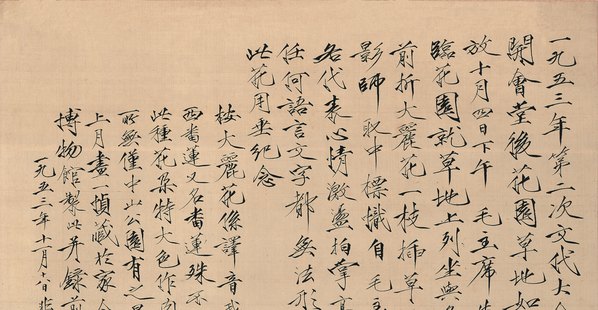 一九五三年第二次文代大會
開會堂後花園草地如
放十月四日下午 毛主席
臨花園就草地上列坐與
前折大麗花一枝插草
影師 取中 標幟自 毛主
名代表心情激盪拍掌高
任何語言文字都無法形
此花用垂紀念
按大麗花係譯音
西番蓮又名番蓮殊不
此種花朵特大色作
所無僅中山公園有之
上月畫一幀藏於家今
博物館製此并錄前
一九五三年十一月十八日